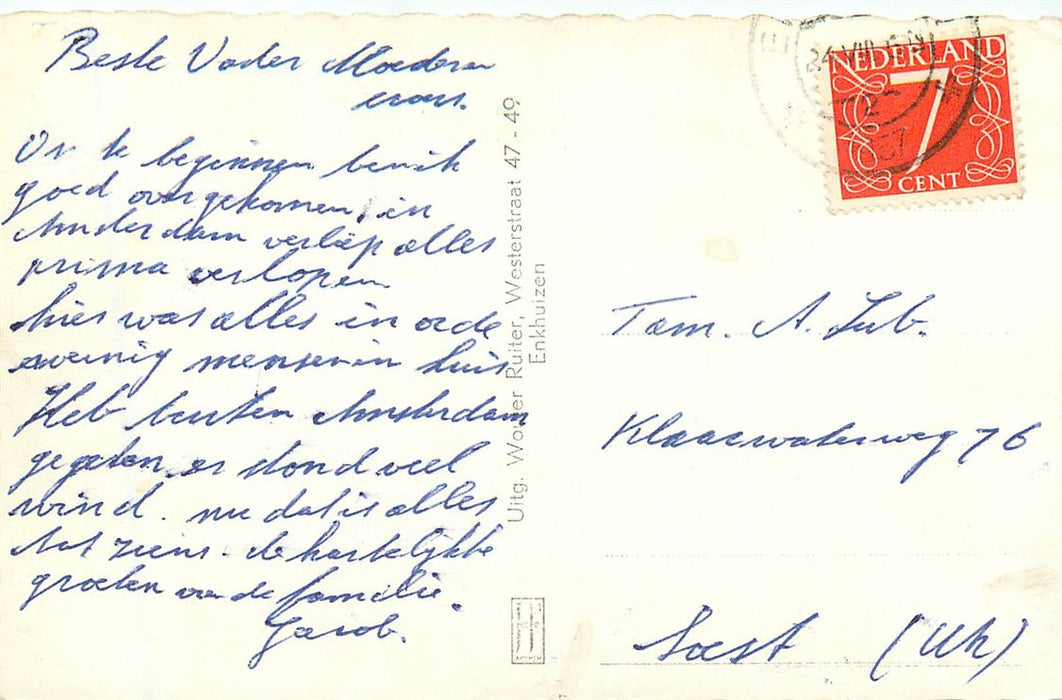 Beste Vader Moeder en
Om te beginnen ben ik
goed overgekomen, in
Amsterdam verliep alles
prima verlopen
hier was alles in orde
weinig mensen in huis
Heb buiten Amsterdam
gegeten er stond veel
wind. nu dat is alles
tot ziens. de hartelijkke
groeten van de familie.
Jacob.
Uitg. Wouter Ruiter, Westerstraat 47 - 49
Enkhuizen
NEDERLAND
7
CENT
24 VIII
12
57
Fam. A. Lub.
Klaaswaterweg 76
Soest (Utr)